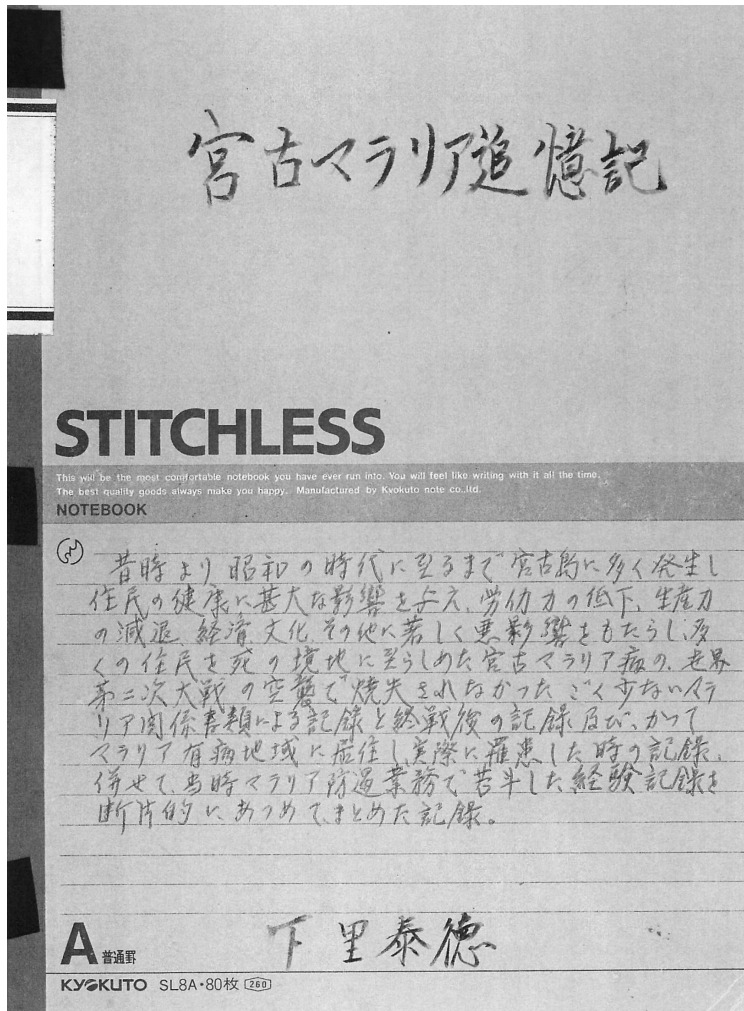 宮古マラリア追憶記
STITCHLESS
This will be the most comfortable notebook you have ever run into. You will feel like writing with it all the time.
The best quality goods always make you happy. Manufactured by Kyokuto note co.,ltd.
NOTEBOOK
昔時より昭和の時代に至るまで宮古島に多く発生し
住民の健康に甚大な影響を与え、労働力の低下、生産力
の減退、経済、文化、その他に著しく悪影響をもたらし、多
くの住民を死の境地に至らしめた宮古マラリア病の、世界
第二次大戦の空襲で焼失されなかったごく少ないマラ
リア関係書類による記録と終戦後の記録及び、かつて
マラリア有病地域に居住し実際に罹患した時の記録、
併せて、当時マラリア防遏業務で苦斗した経験記録を
断片的に、あつめて、まとめた記録。
下里泰徳
A 普通罫
KYOKUTO SL8A・80枚 260